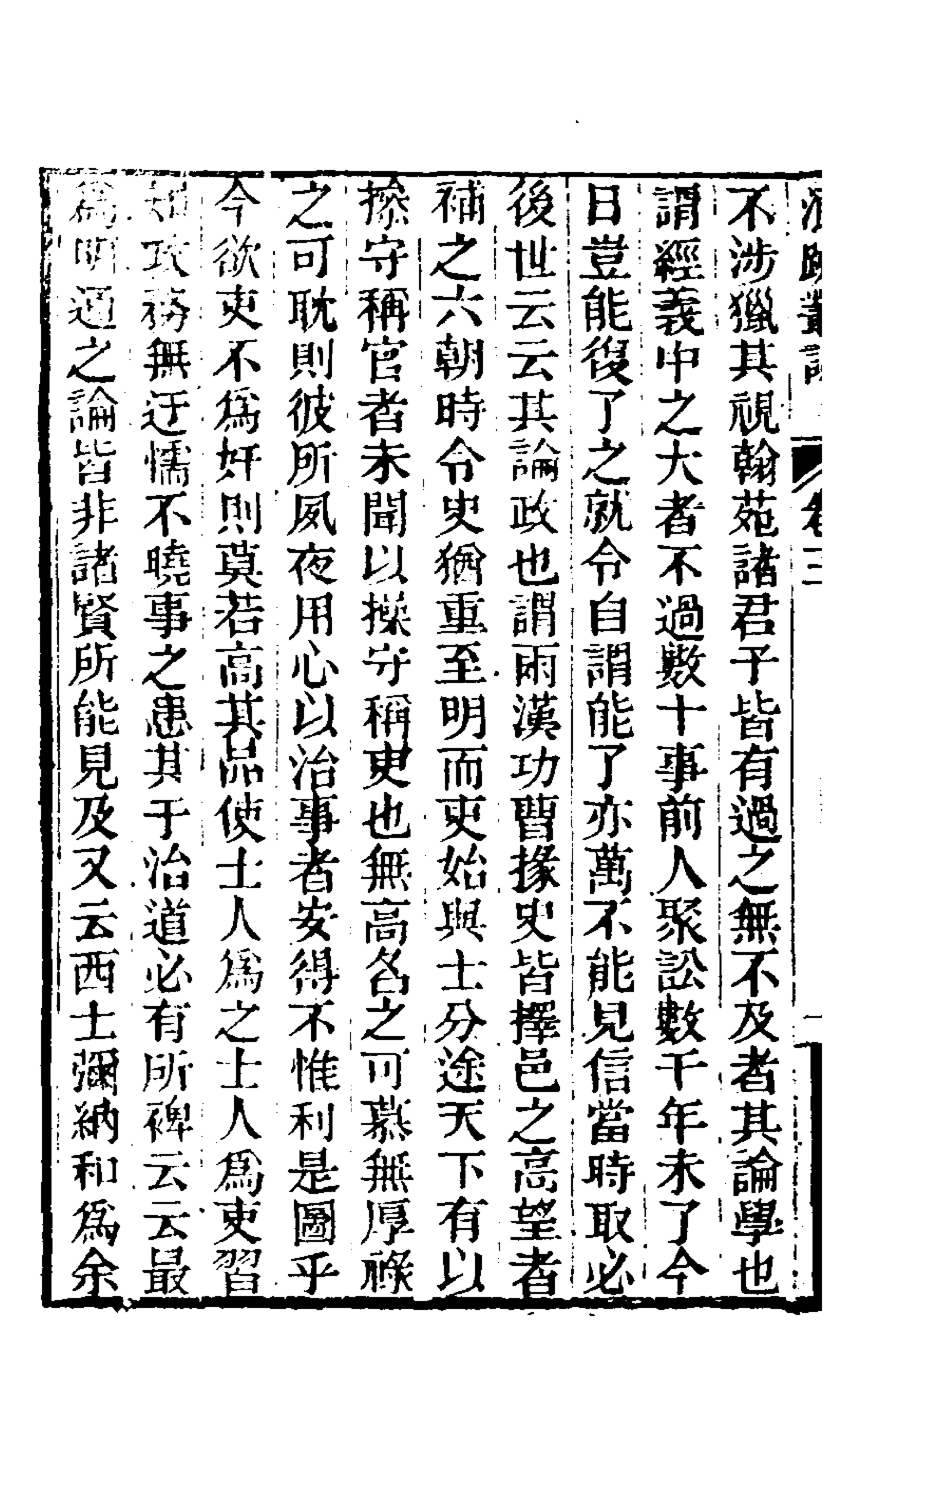 叢
卷三
不涉獵其視翰苑諸君子皆有過之無不及者其論學也
謂經義中之大者不過數十事前人聚訟數千年未了今
日豈能復了之就令自謂能了亦萬不能見信當時取必
後世云云其論政也謂兩漢功曹掾史皆擇邑之高望者
補之六朝時令史猶重至明而吏始與士分途天下有以
操守稱官者未聞以操守稱吏也無高名之可慕無厚祿
之可耽則彼所夙夜用心以治事者安得不惟利是圖乎
今欲吏不爲奸則莫若高其品使士人爲之士人爲吏習
知政務無迂懦不曉事之患其于治道必有所裨云云最
爲明通之論皆非諸賢所能見及又云西士彌納和爲余